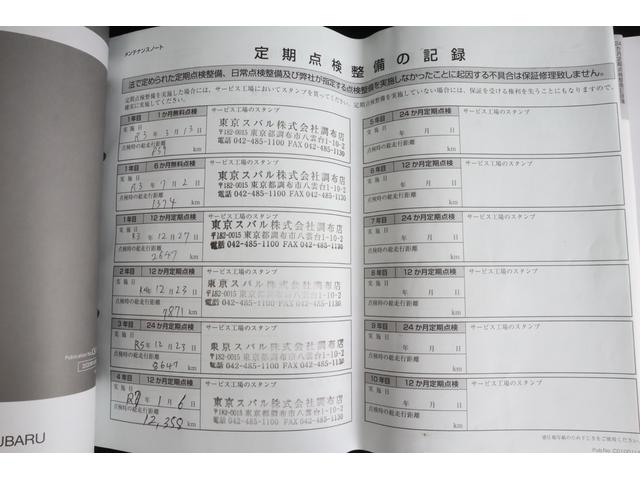 メンテナンスノート
定期点検整備の記録
法で定められた定期点検整備、日常点検整備及び弊社が指定する点検整備を実施しなかったことに起因する不具合は保証修理致しません。
定期点検整備を実施した場合には、サービス工場においてスタンプを貰ってください。
定期点検整備を実施していない場合には、保証を受ける権利を失うこともありますので、
確実に実施してください。
1年目 1か月無料点検
サービス工場のスタンプ
実施日
R3年3月13日
点検時の総走行距離
km
東京スバル株式会社調布店
〒182-0015 東京都調布市八雲台1-10-2
電話 042-485-1100 FAX 042-485-1130
1年目 6か月無料点検
サービス工場のスタンプ
実施日
R3年7月2日
点検時の総走行距離
1374 km
東京スバル株式会社調布店
〒182-0015 東京都調布市八雲台1-10-2
電話 042-485-1100 FAX 042-485-1130
1年目 12か月定期点検
サービス工場のスタンプ
実施日
R3年12月27日
点検時の総走行距離
2647 km
東京スバル株式会社調布店
〒182-0015 東京都調布市八雲台1-10-2
電話 042-485-1100 FAX 042-485-1130
2年目 12か月定期点検
サービス工場のスタンプ
実施日
R4年12月23日
点検時の総走行距離
7871 km
東京スバル株式会社調布店
〒182-0015 東京都調布市八雲台1-10-2
電話 042-485-1100 FAX 042-485-1130
3年目 24か月定期点検
サービス工場のスタンプ
実施日
R5年12月23日
点検時の総走行距離
8647 km
東京スバル株式会社調布店
〒182-0015 東京都調布市八雲台1-10-2
電話 042-485-1100 FAX 042-485-1130
4年目 12か月定期点検
サービス工場のスタンプ
実施日
R7年1月6日
点検時の総走行距離
12,358 km
東京スバル株式会社調布店
〒182-0015 東京都調布市八雲台1-10-2
電話 042-485-1100 FAX 042-485-1130
5年目 24か月定期点検
サービス工場のスタンプ
実施日
年 月 日
点検時の総走行距離
km
6年目 12か月定期点検
サービス工場のスタンプ
実施日
年 月 日
点検時の総走行距離
km
7年目 24か月定期点検
サービス工場のスタンプ
実施日
年 月 日
点検時の総走行距離
km
8年目 12か月定期点検
サービス工場のスタンプ
実施日
年 月 日
点検時の総走行距離
km
9年目 24か月定期点検
サービス工場のスタンプ
実施日
年 月 日
点検時の総走行距離
km
10年目 12か月定期点検
サービス工場のスタンプ
実施日
年 月 日
点検時の総走行距離
km
UBARU